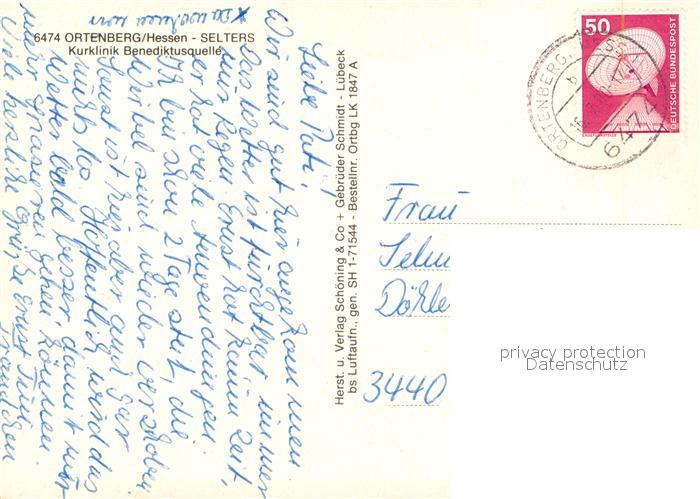 6474 ORTENBERG/Hessen - SELTERS
Kurklinik Benediktusquelle
x da wohnen wir
Liebe Pati!
Wir sind gut hier angekommen
Das Wetter ist furchtbar immer
nur Regen. Ernst hat kaum Zeit,
er hat viele Anwendungen
Ich bin schon 2 Tage steif, die
Wirbel sind wieder verschoben
Sonst ist hier aber auch gar
nichts los. Hoffentlich wird das
Wetter bald besser, damit wir
mehr spazieren gehen können
Viele herzliche Grüße Ernst
Herst. u. Verlag Schöning & Co + Gebrüder Schmidt - Lübeck
bs Luftaufn., gen. SH 1-71544 - Bestellnr. Ortbg LK 1847 A
50
DEUTSCHE BUNDESPOST
ORTENBERG, HESS
6474
Frau
Selm
Döhle
3440
privacy protection
Datenschutz